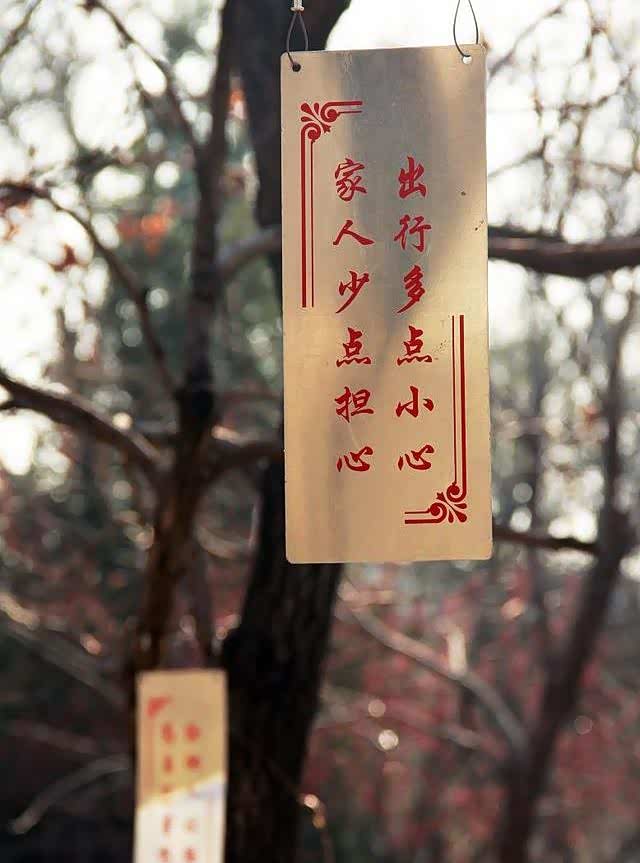 出行多点小心
家人少点担心